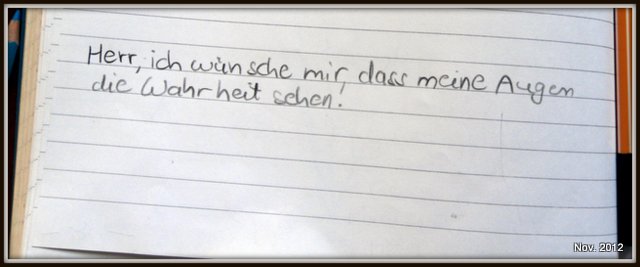 Herr, ich wünsche mir, dass meine Augen
die Wahrheit sehen.
Nov. 2012